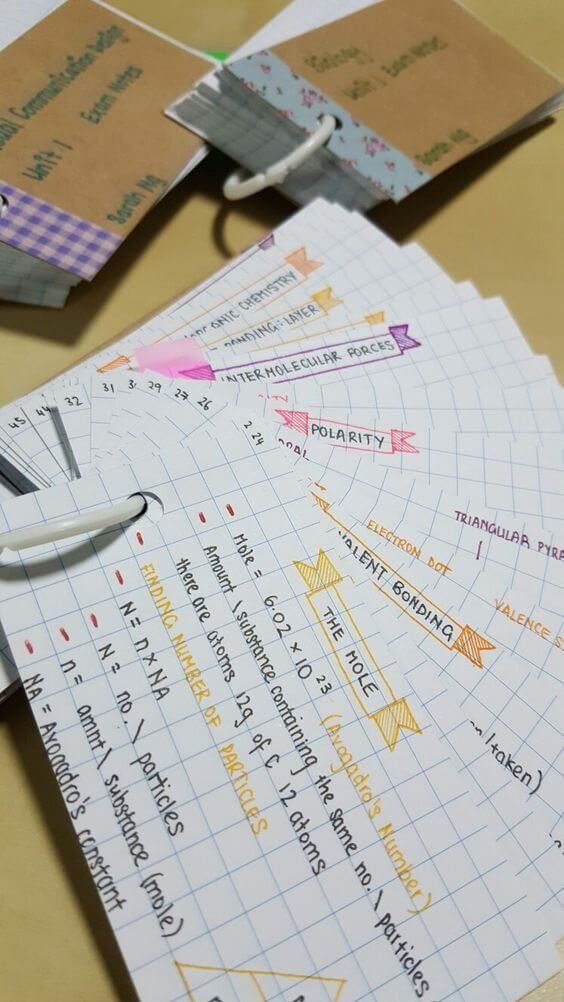 Visual Communication Design
Unit 1 Exam Notes
Sarah Ng
Biology
Unit 1 Exam Notes
Sarah Ng
CHEMISTRY
LAYER
INTERMOLECULAR FORCES
POLARITY
45 44 32 31 29 27 26
24
TRIANGULAR
ELECTRON DOT
VALENT BONDING
VALENCE
taken)
THE MOLE
Mole = 6.02 x 10 23 (Avogadro's Number)
Amount \ substance containing the same no. \ particles
there are atoms 12g of C 12 atoms
FINDING NUMBER OF PARTICLES
N = n x NA
N = no. \ particles
n = amnt \ substance (mole)
NA = Avogadro's constant